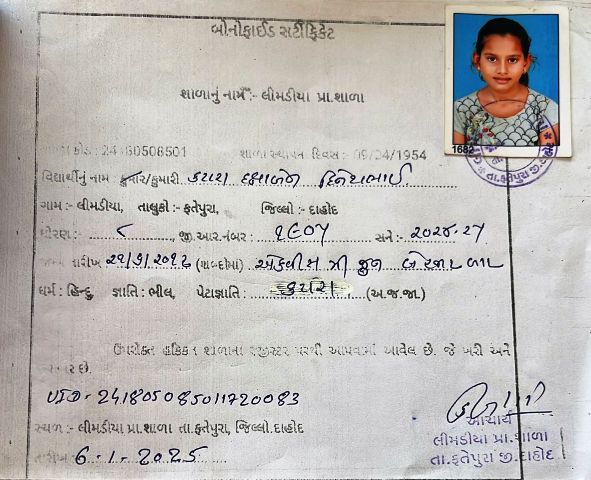 બોનોફાઈડ સર્ટીફિકેટ
શાળાનું નામ :- લીમડીયા પ્રા.શાળા
કોડ : 24180508501 શાળા સ્થાપન દિવસ :- 09/24/1954
વિદ્યાર્થીનું નામ કુમાર/કુમારી કટારા દક્ષાબેન દિનેશભાઈ
ગામ :- લીમડીયા, તાલુકો :- ફતેપુરા, જિલ્લો :- દાહોદ
ધોરણ : ૮, જી.આર.નંબર : ૧૯૦૫ સને :- ૨૦૨૪-૨૫
તારીખ (શબ્દોમાં) એકવીસ બે હજાર બાર
ધર્મ : હિન્દુ, જ્ઞાતિ : ભીલ, પેટાજ્ઞાતિ : કટારા (અ.જ.જા.)
ઉપરોક્ત હકિકત શાળાના રજીસ્ટર પરથી આપવામાં આવેલ છે. જે ખરી અને
છે.
UID- 241805085011720083
સ્થળ :- લીમડીયા પ્રા.શાળા તા.ફતેપુરા, જિલ્લો.દાહોદ
તારીખ 6-1-2025
આચાર્ય
લીમડીયા પ્રા.શાળા
તા.ફતેપુરા જી.દાહોદ
1682
તા.ફતેપુરા જી.દાહોદ